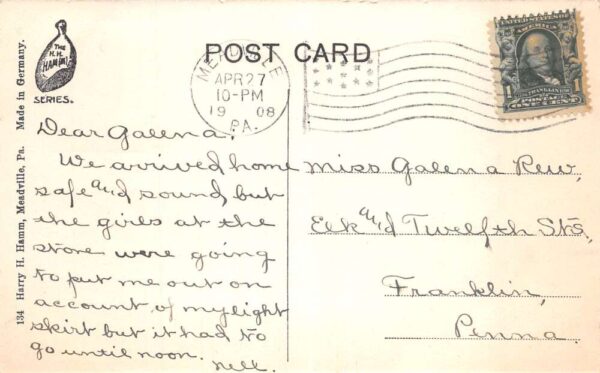 THE
H.H.
HAMM
SERIES.
134 Harry H. Hamm, Meadville, Pa. Made in Germany.
POST CARD
MEADVILLE
APR 27
10-PM
1908
PA.
UNITED STATES OF
AMERICA
1 FRANKLIN 1
POSTAGE
ONE CENT
Dear Galena,
We arrived home
safe and sound, but
the girls at the
store were going
to put me out on
account of my light
skirt but it had to
go until noon.
Nell.
Miss Galena Rew,
Elk and Twelfth Sts,
Franklin,
Penna.